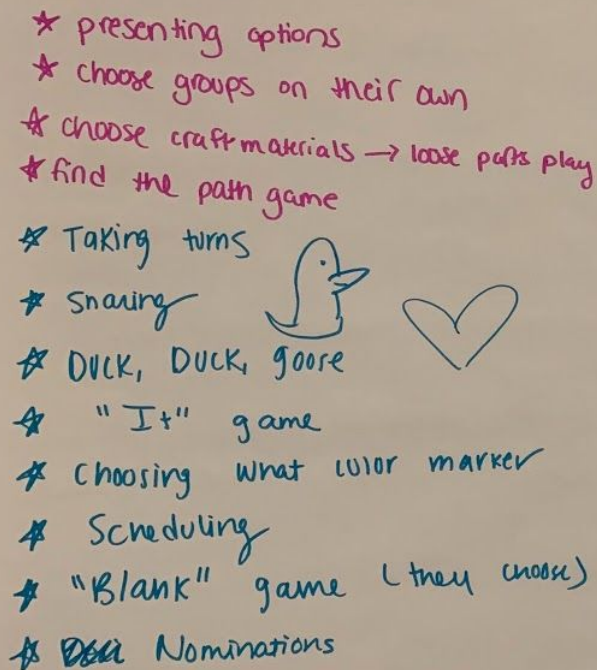 * presenting options
* choose groups on their own
* choose craft materials → loose parts play
* find the path game
* Taking turns
* Sharing
* DUCK, DUCK, goose
* "It" game
* Choosing what color marker
* Scheduling
* "Blank" game (they choose)
* Nominations